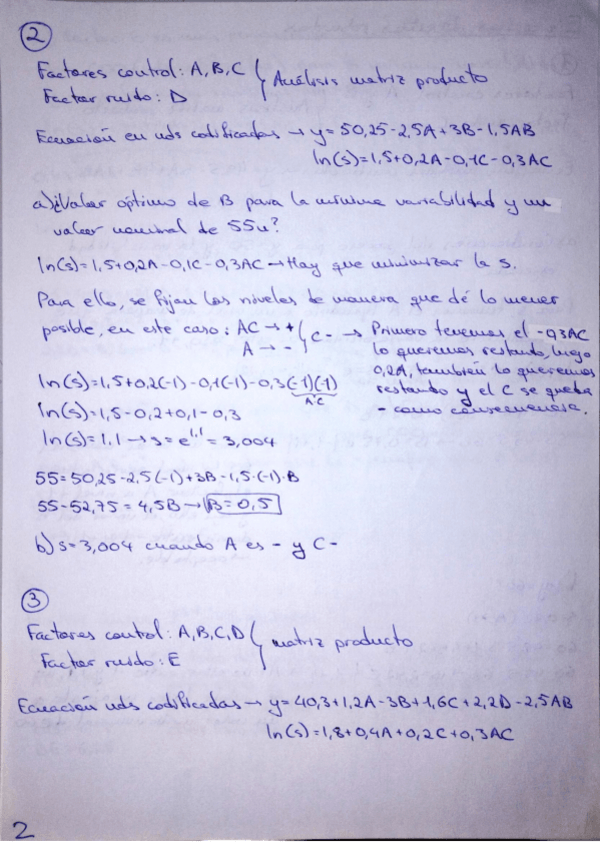 ②
Factores control: A, B, C } Análisis matriz producto
Factor ruido: D
Ecuación en uds codificadas → y = 50,25 - 2,5A + 3B - 1,5AB
ln(s) = 1,5 + 0,2A - 0,1C - 0,3AC
a) ¿Valor óptimo de B para la mínima variabilidad y un
valor nominal de 55u?
ln(s) = 1,5 + 0,2A - 0,1C - 0,3AC → Hay que minimizar la s.
Para ello, se fijan los niveles de manera que dé lo menor
posible, en este caso: AC → + } C - → Primero tenemos el -0,3AC
A → - lo queremos restando, luego
0,2A, también lo queremos
ln(s) = 1,5 + 0,2(-1) - 0,1(-1) - 0,3(-1)(-1) restando y el C se queda
A·C - como consecuencia.
ln(s) = 1,5 - 0,2 + 0,1 - 0,3
ln(s) = 1,1 → s = e^1,1 = 3,004
55 = 50,25 - 2,5(-1) + 3B - 1,5·(-1)·B
55 - 52,75 = 4,5B → B = 0,5
b) s = 3,004 cuando A es - y C -
③
Factores control: A, B, C, D } matriz producto
Factor ruido: E
Ecuación uds codificadas → y = 40,3 + 1,2A - 3B + 1,6C + 2,2D - 2,5AB
ln(s) = 1,8 + 0,4A + 0,2C + 0,3AC
2